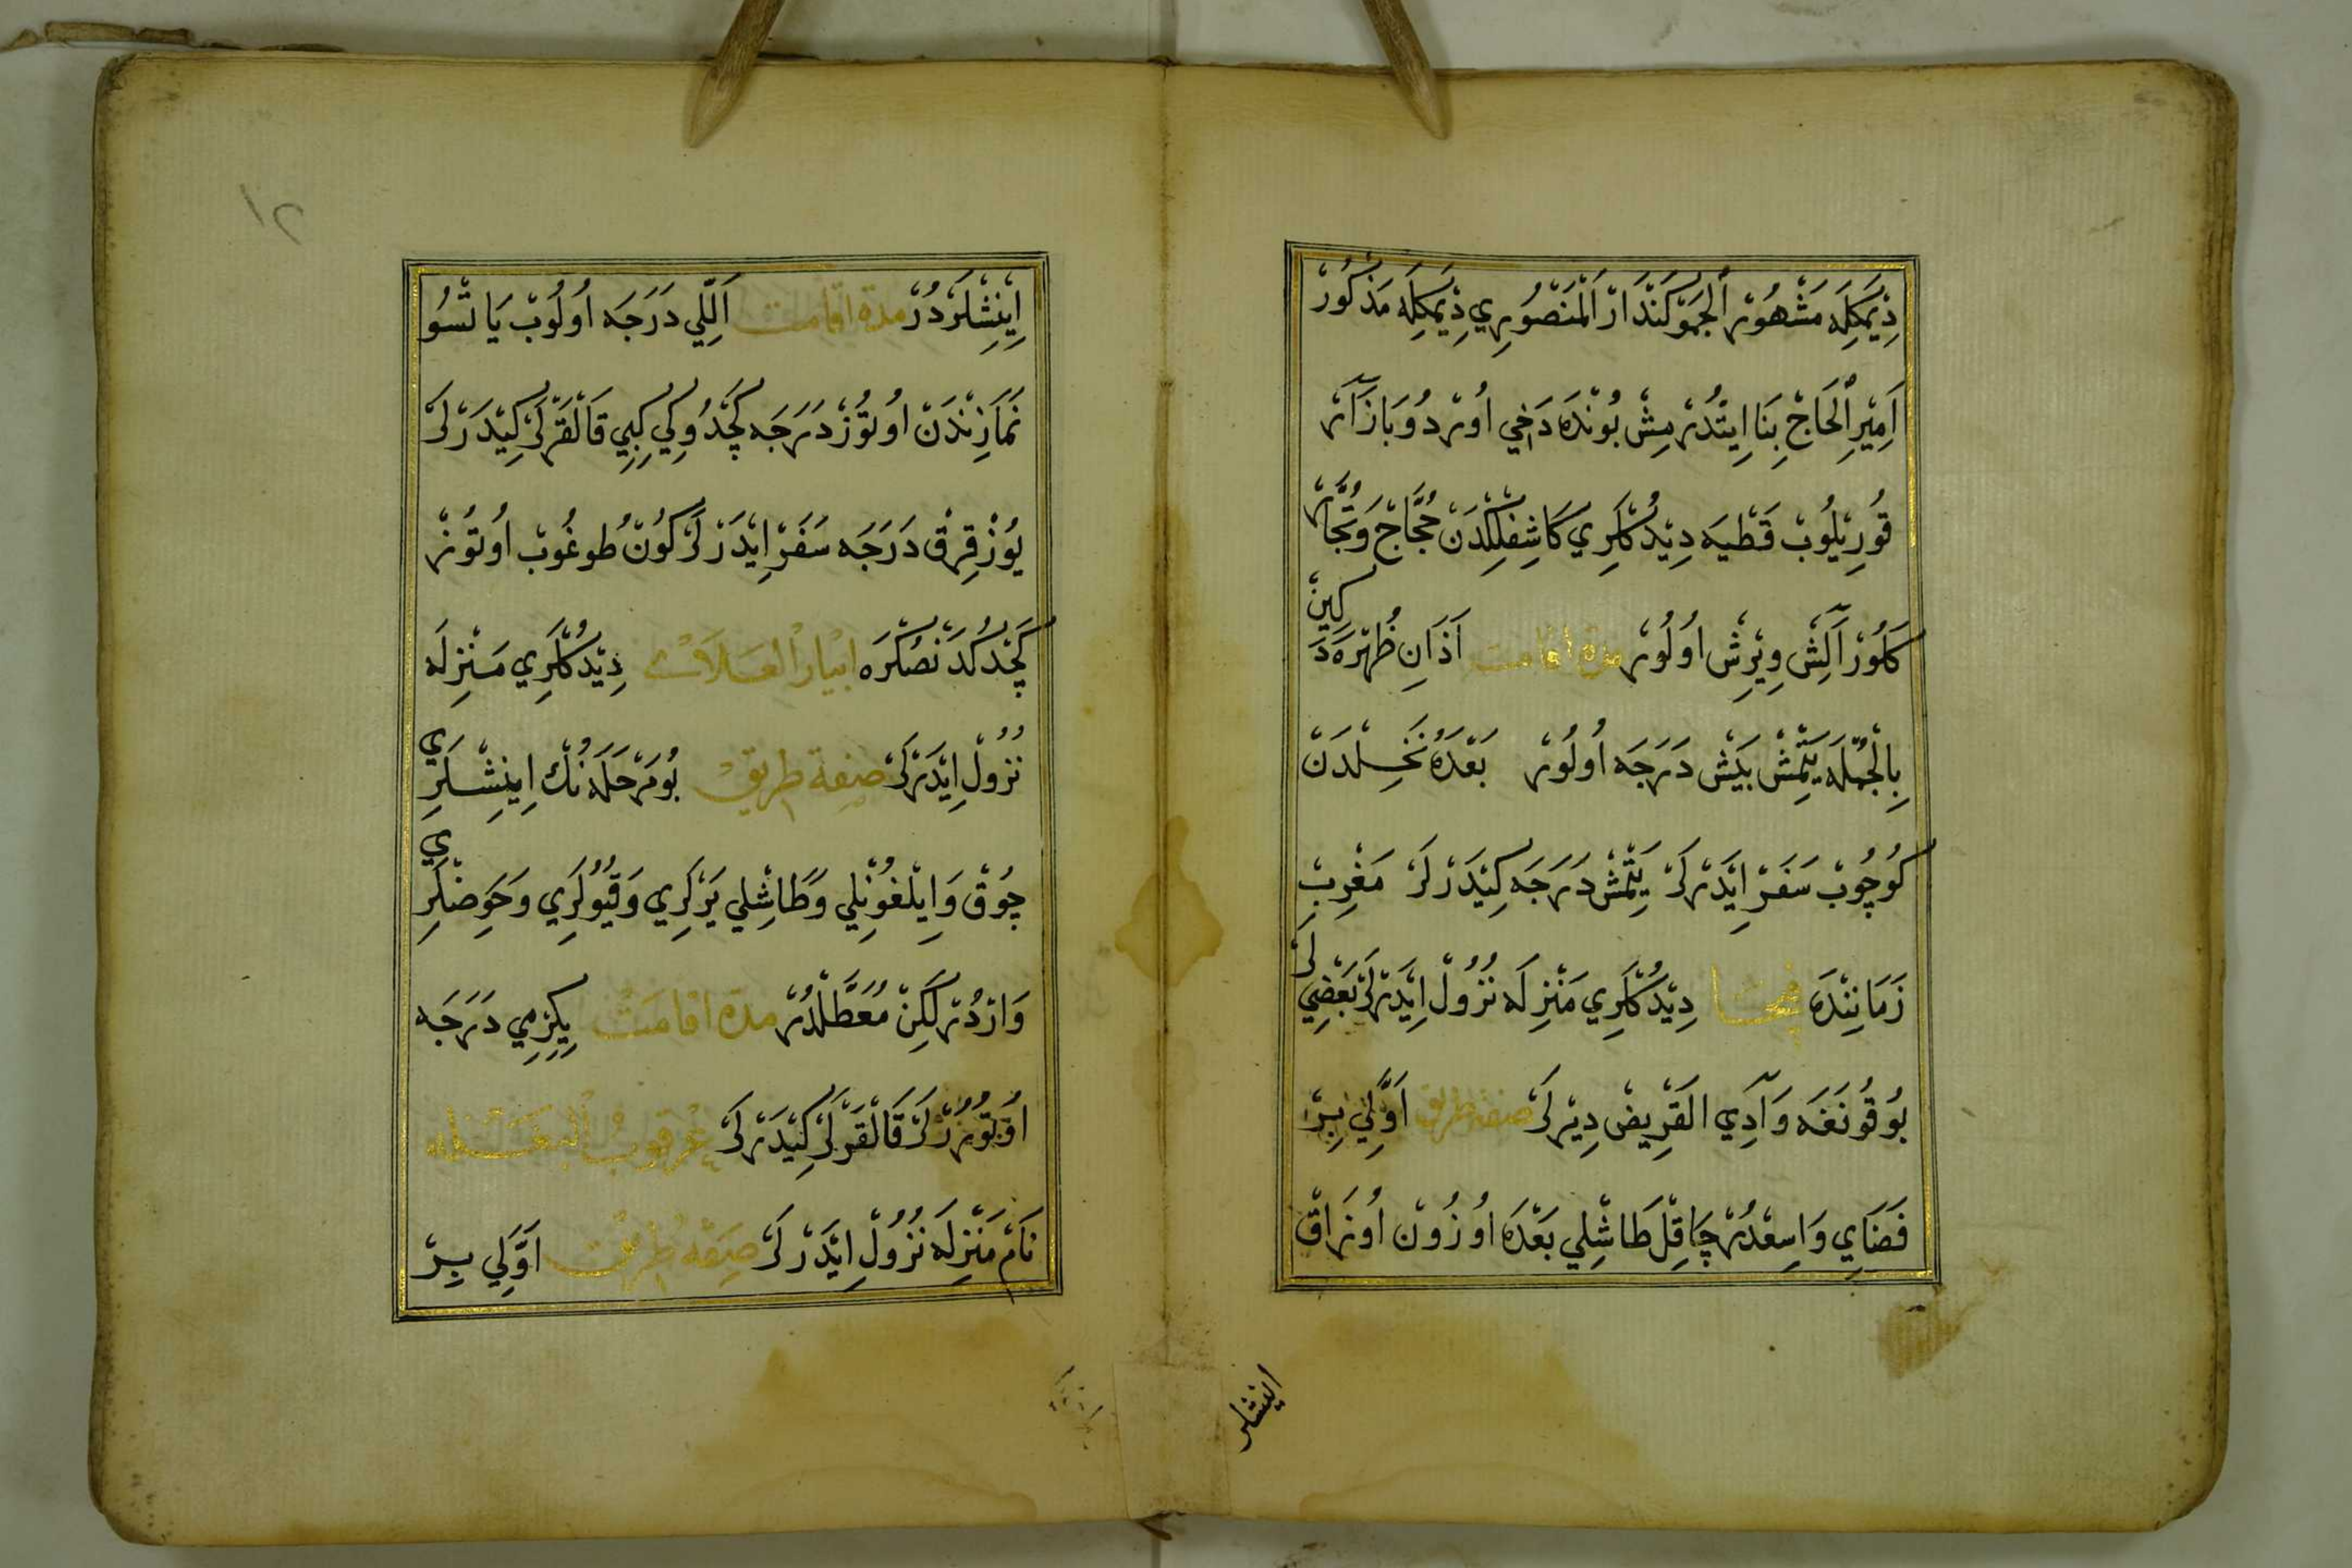 دِيْمَكِلَه مَشْهُوْر اَلْجُوْكَنْدَارْ اَلْمَنْصُوْرِي دِيْمَكِلَه مَذْكُوْرْ
اَمِيْرِ اْلحَاجْ بِنَا اِيتْدُرْمِشْ بُوْنْدَه دَاخِي اُوْرْدُو بَازَآرْ
قُوْرِيْلُوبْ قَطْيَه دِيْدُكْلَرِي كَاشِفْلِكْدَنْ حُجَّاجْ وَتُجَّارْ
كَلُوْرْ آلِشْ وِيْرِشْ اُولُوْرْ مدة اقامت اَذَانِ ظُهْرَه دَكِينْ
بِالْجُمْلَه يَتْمِشْ بَيشْ دَرَجَه اُولُوْرْ بَعْدَهُ نَخِلْدَنْ
كُوچُوبْ سَفَرْ اِيْدَرْلَرْ يَتْمِشْ دَرَجَه كِيْدَرْلَرْ مَغْرِبْ
زَمَانِنْدَه دِيْدُكْلَرِي مَنْزِلَه نُزُولْ اِيْدَرْلَرْ بَعْضِيلَرْ
بُوقُونَغَه وَآدِي القَرِيضْ دِيْرلَرْ صفة طريق اَوَّلِي بِرْ
فَضَايِ وَاسِعْدُرْ چَاقِلْ طَاشْلِي بَعْدَه اُوزُونْ اُوْرَاقْ
اينشلر
١٢
اِيْنِشْلَرْدُرْ مدة اقامت اَللِّي دَرَجَه اُولُوبْ يَاتْسُو
نَمَازِنْدَنْ اُوتُوْزْ دَرَجَه كَچْدُوكِي كِبِي قَالْقَرْلَرْ كِيْدَرْلَرْ
يُوْزْ قِرْقْ دَرَجَه سَفَرْ اِيْدَرْلَرْ كُونْ طُوغُوبْ اُوتُوزْ
كَچْدُكْدَنْصُكْرَه اَبْيَارْ اْلعَلَاقْ دِيْدُكْلَرِي مَنْزِلَه
نُزُولْ اِيْدَرْلَرْ صفة طريق بُومَرْحَلَه نُكْ اِينِشْلَرِي
چُوقْ وَاِيْلْغُونْلِي وَطَاشْلِي يَرْلَرِي وَقُيُولَرِي وَحَوضْلَرِي
وَارْدُرْ لٰكِنْ مُعَطَّلْدُرْ مدة اقامَتْ يِكِرْمِي دَرَجَه
اوتُورُرْلَرْ قَالْقَرْلَرْ كِيْدَرْلَرْ عرقوب البغله
نَامْ مَنْزِلَه نُزُولْ اِيْدَرْلَرْ صِفَةْ طَرِيقْ اَوَّلِي بِرْ